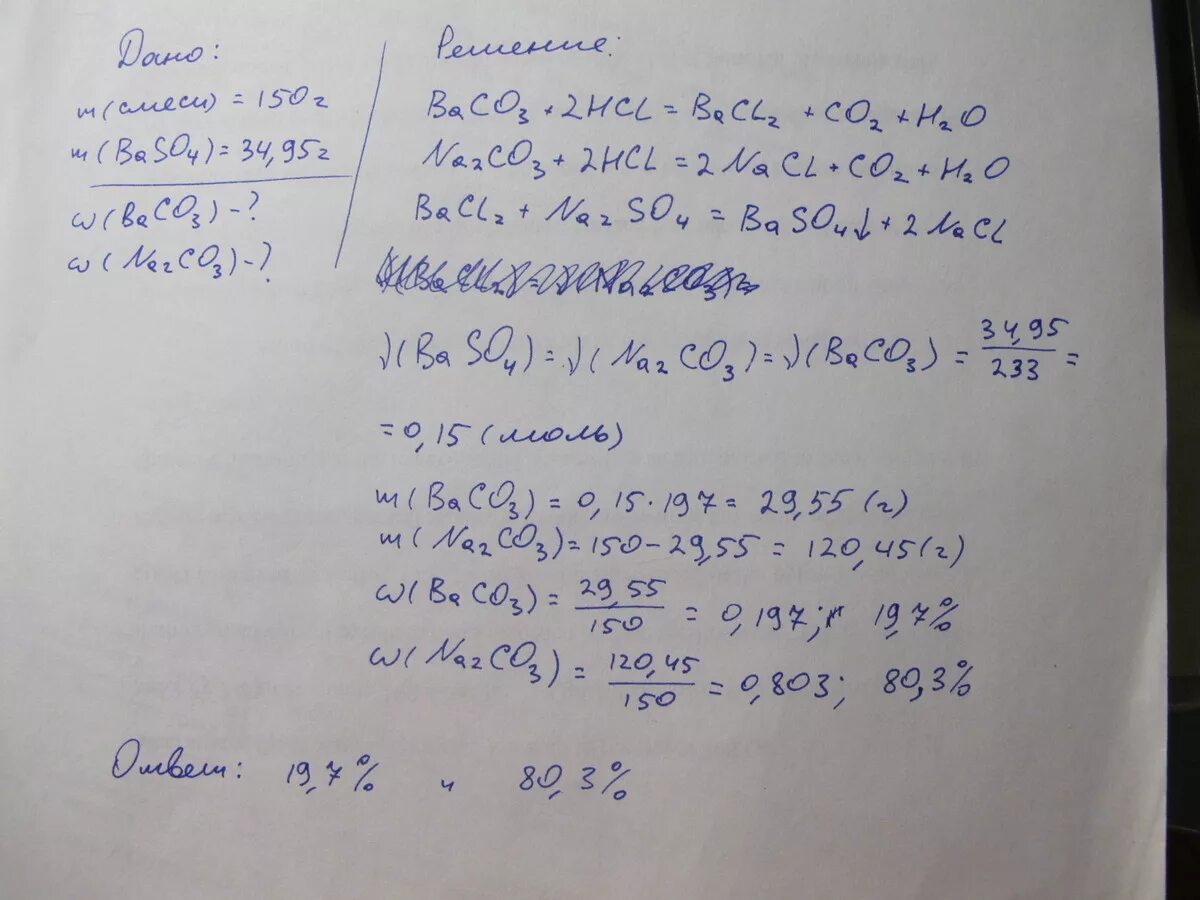 Дано:
m(смеси) = 150 г
m(BaSO4) = 34,95 г
ω(BaCO3) - ?
ω(Na2CO3) - ?
Решение:
BaCO3 + 2HCl = BaCl2 + CO2 + H2O
Na2CO3 + 2HCl = 2NaCl + CO2 + H2O
BaCl2 + Na2SO4 = BaSO4↓ + 2NaCl
ν(BaSO4) = ν(Na2CO3) = ν(BaCO3) = 34,95/233 =
= 0,15 (моль)
m(BaCO3) = 0,15 · 197 = 29,55 (г)
m(Na2CO3) = 150 - 29,55 = 120,45 (г)
ω(BaCO3) = 29,55/150 = 0,197; 19,7%
ω(Na2CO3) = 120,45/150 = 0,803; 80,3%
Ответ: 19,7% и 80,3%